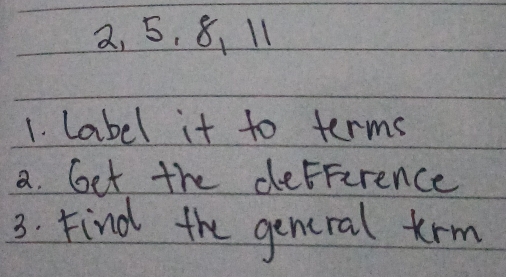 2, 5, 8, 11
1. Label it to terms
2. Get the defference
3. Find the general term